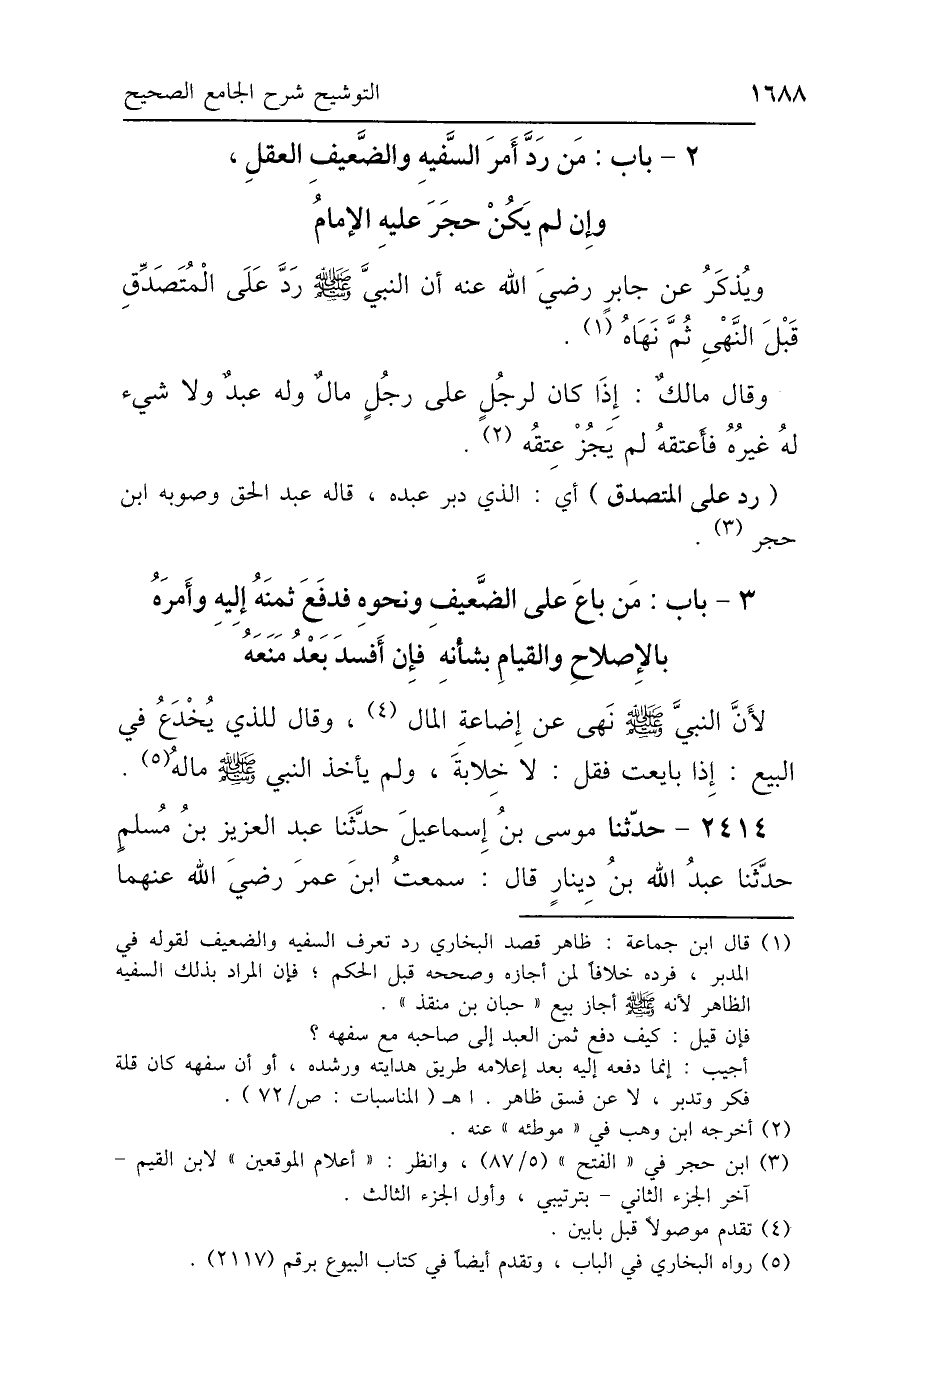 ١٦٨٨ التوشيح شرح الجامع الصحيح
٢ - باب : مَن رَدَّ أَمرَ السَّفيهِ والضَّعيفِ العقلِ ،
وإِن لم يَكُنْ حجَرَ عليهِ الإمامُ
ويُذكَرُ عن جابرٍ رضيَ الله عنه أن النبيَّ ﷺ رَدَّ عَلَى الْمُتَصَدِّقِ
قَبْلَ النَّهْىِ ثُمَّ نَهَاهُ (١) .
وقال مالكٌ : إِذَا كان لرجُلٍ على رجُلٍ مالٌ وله عبدٌ ولا شيء
لهُ غيرُهُ فأَعتقهُ لم يَجُزْ عِتقُه (٢) .
( رد على المتصدق ) أي : الذي دبر عبده ، قاله عبد الحق وصوبه ابن
حجر (٣) .
٣ - باب : مَن باعَ على الضَّعيفِ ونحوهِ فدفَعَ ثمنَهُ إليهِ وأَمرَهُ
بالإِصلاحِ والقيامِ بشأنهِ فإِن أَفسدَ بَعْدُ مَنَعَهُ
لأَنَّ النبيَّ ﷺ نَهى عن إِضاعةِ المال (٤) ، وقال للذي يُخْدَعُ في
البيع : إِذا بايعت فقل : لا خِلابةَ ، ولم يأخذ النبي ﷺ مالهُ(٥) .
٢٤١٤ - حدّثنا موسى بنُ إسماعيلَ حدَّثَنا عبد العزيز بنُ مُسلمٍ
حدَّثَنا عبدُ الله بنُ دِينارٍ قال : سمعتُ ابنَ عمرَ رضيَ الله عنهما
(١) قال ابن جماعة : ظاهر قصد البخاري رد تعرف السفيه والضعيف لقوله في
المدبر ، فرده خلافاً لمن أجازه وصححه قبل الحكم ؛ فإن المراد بذلك السفيه
الظاهر لأنه ﷺ أجاز بيع « حبان بن منقذ » .
فإن قيل : كيف دفع ثمن العبد إلى صاحبه مع سفهه ؟
أجيب : إنما دفعه إليه بعد إعلامه طريق هدايته ورشده ، أو أن سفهه كان قلة
فكر وتدبر ، لا عن فسق ظاهر . ا هـ ( المناسبات : ص/٧٢ ) .
(٢) أخرجه ابن وهب في « موطئه » عنه .
(٣) ابن حجر في « الفتح » (٨٧/٥) ، وانظر : « أعلام الموقعين » لابن القيم -
آخر الجزء الثاني - بترتيبي ، وأول الجزء الثالث .
(٤) تقدم موصولاً قبل بابين .
(٥) رواه البخاري في الباب ، وتقدم أيضاً في كتاب البيوع برقم (٢١١٧) .